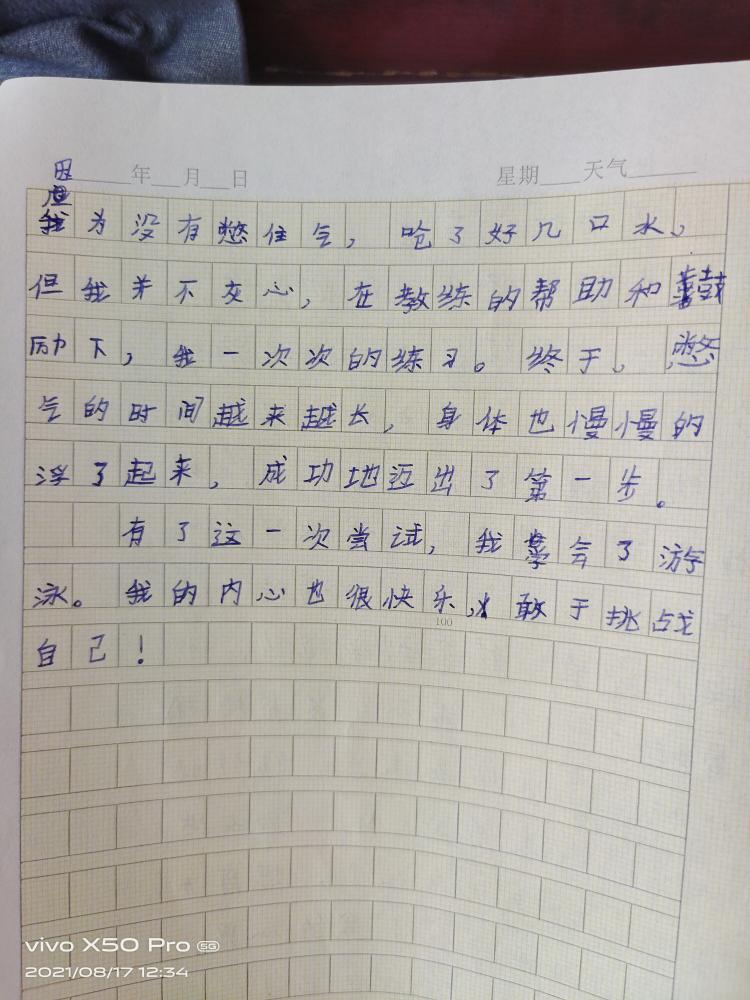 年 月 日 星期 天气
因
我为没有憋住气，呛了好几口水。
但我并不灰心，在教练的帮助和鼓
励下，我一次次的练习。终于。憋
气的时间越来越长，身体也慢慢的
浮了起来，成功地迈出了第一步。
有了这一次尝试，我学会了游
泳。我的内心也很快乐，敢于挑战
100
自己！
vivo X50 Pro 5G
2021/08/17 12:34